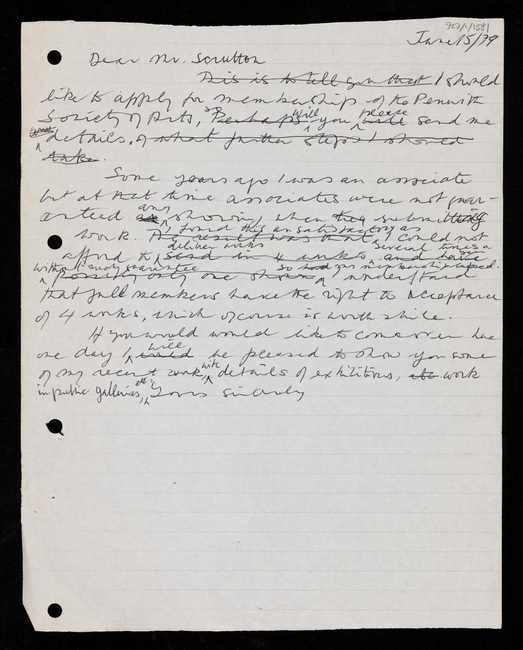 June 15/79
Dear Mr. Scrutton
This is to tell you that I should
like to apply for membership of the Penwith
Society of Arts, Perhaps will you please will send me
details, of what further steps I should
take.
Some years ago I was an associate
but at that time associates were not guar-
anteed any showing when they submitting
work. I found this unsatisfactory as
As result was that I could not
afford to deliver works send in 4 works several times a year and have
without such guarantee so had membership lapsed.
possibly only one shown I understand
that full members have the right to acceptance
of 4 works, which of course is worth while.
If you would would like to come over here
one day I will could be pleased to show you some
of my recent work, with details of exhibitions, etc work
in public galleries, etc,
Yours sincerely